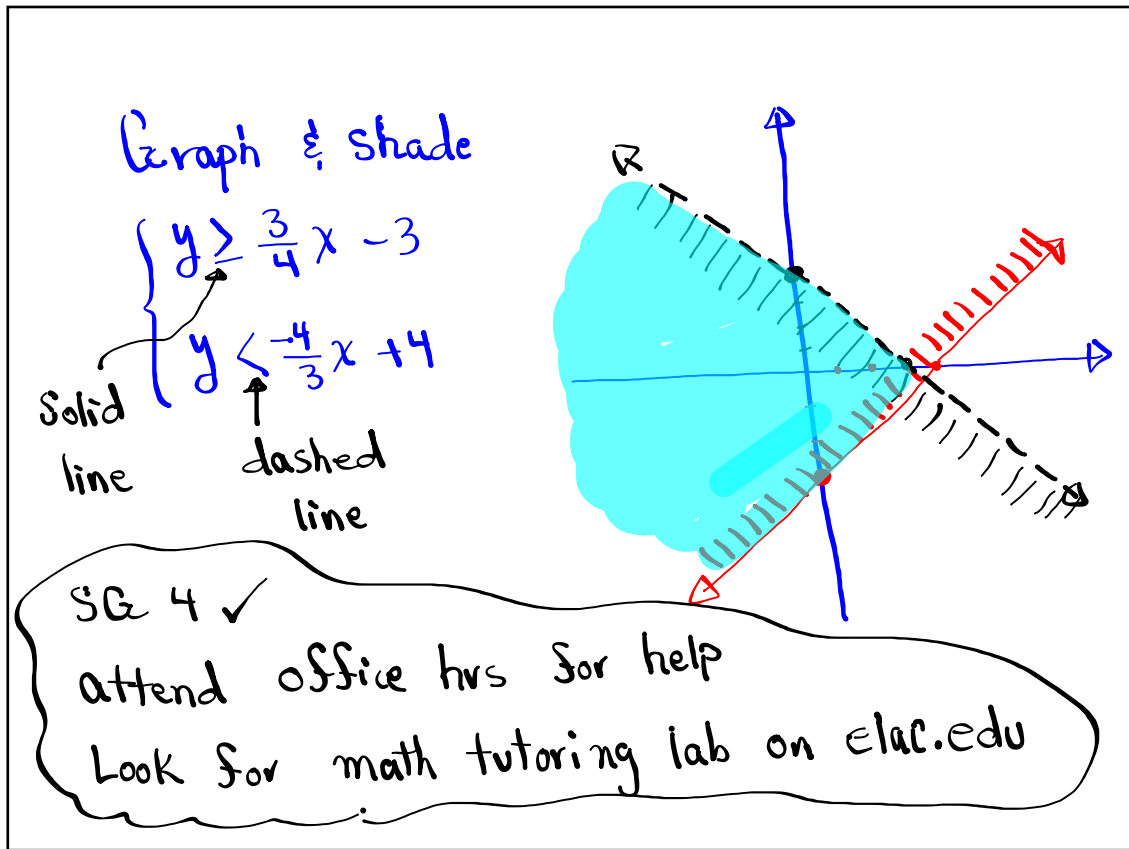 Graph & Shade
y ≥ 3/4 x - 3
y < -4/3 x + 4
Solid
line
dashed
line
SG 4 ✓
attend office hrs for help
Look for math tutoring lab on elac.edu